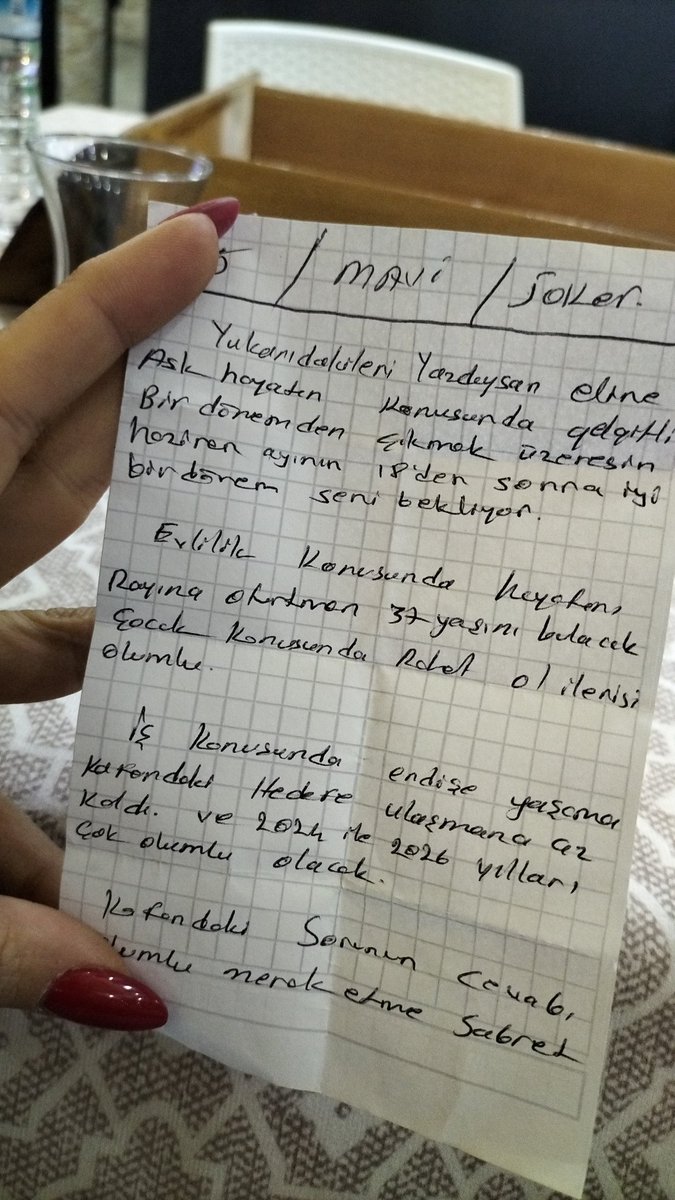 5 / MAVİ / JOKER.
Yukarıdakileri Yazdıysan eline
Aşk hayatın konusunda gelgitli
Bir dönemden çıkmak üzeresin
haziran ayının 18'den sonra iyi
bir dönem seni bekliyor.
Evlilik konusunda hayatını
Rayına oturtman 37 yaşını bulacak
Çocuk konusunda Rahat ol ilerisi
olumlu.
İş konusunda endişe yaşama
kafandaki Hedefe ulaşmana az
kaldı. ve 2024 ile 2026 yılları
çok olumlu olacak.
kafandaki Sorunun cevabı,
olumlu merak etme Sabret